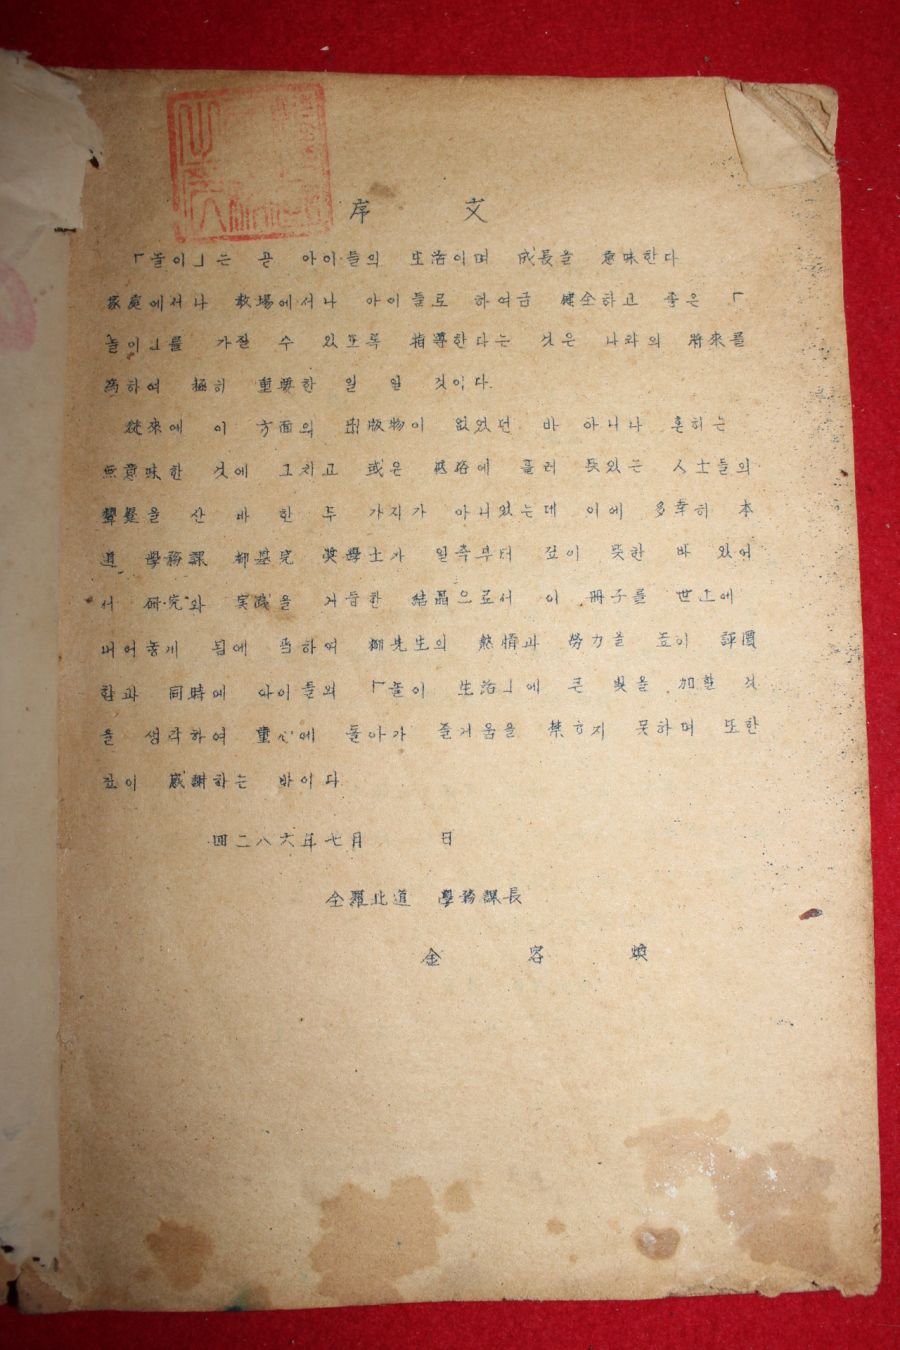 序 文
「놀이」는 곧 아이들의 生活이며 成長을 意味한다
家庭에서나 敎場에서나 아이들로 하여금 健全하고 좋은 「
놀이」를 가질 수 있도록 指導한다는 것은 나라의 將來를
為하여 極히 重要한 일 일 것이다.
從來에 이 方面의 出版物이 없었던 바 아니나 흔히는
無意味한 것에 그치고 或은 에 흘러 뜻있는 人士들의
을 산 바 한 두 가지가 아니었는데 이에 多幸히 本
道 學務課 柳基完 奬學士가 일즉부터 깊이 뜻한 바 있어
서 硏究와 実践을 거듭한 結晶으로서 이 冊子를 世上에
내어놓게 됨에 当하여 柳先生의 熱情과 勞力을 높이 評價
함과 同時에 아이들의 「놀이 生活」에 큰 빛을 加할 것
을 생각하여 童心에 돌아가 즐거움을 禁ㅎ지 못하며 또한
깊이 感謝하는 바이다
四二八六年七月 日
全羅北道 學務課長
金 容 煥